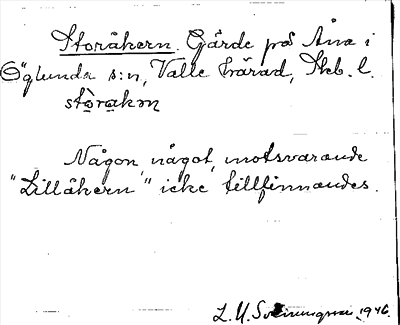 Storåkern. Gärde på Åna i
Öglunda s:n, Valle härad, Skb. l.
Någon, något motsvarande
"Lillåkern" icke tillfinnandes.
1946.